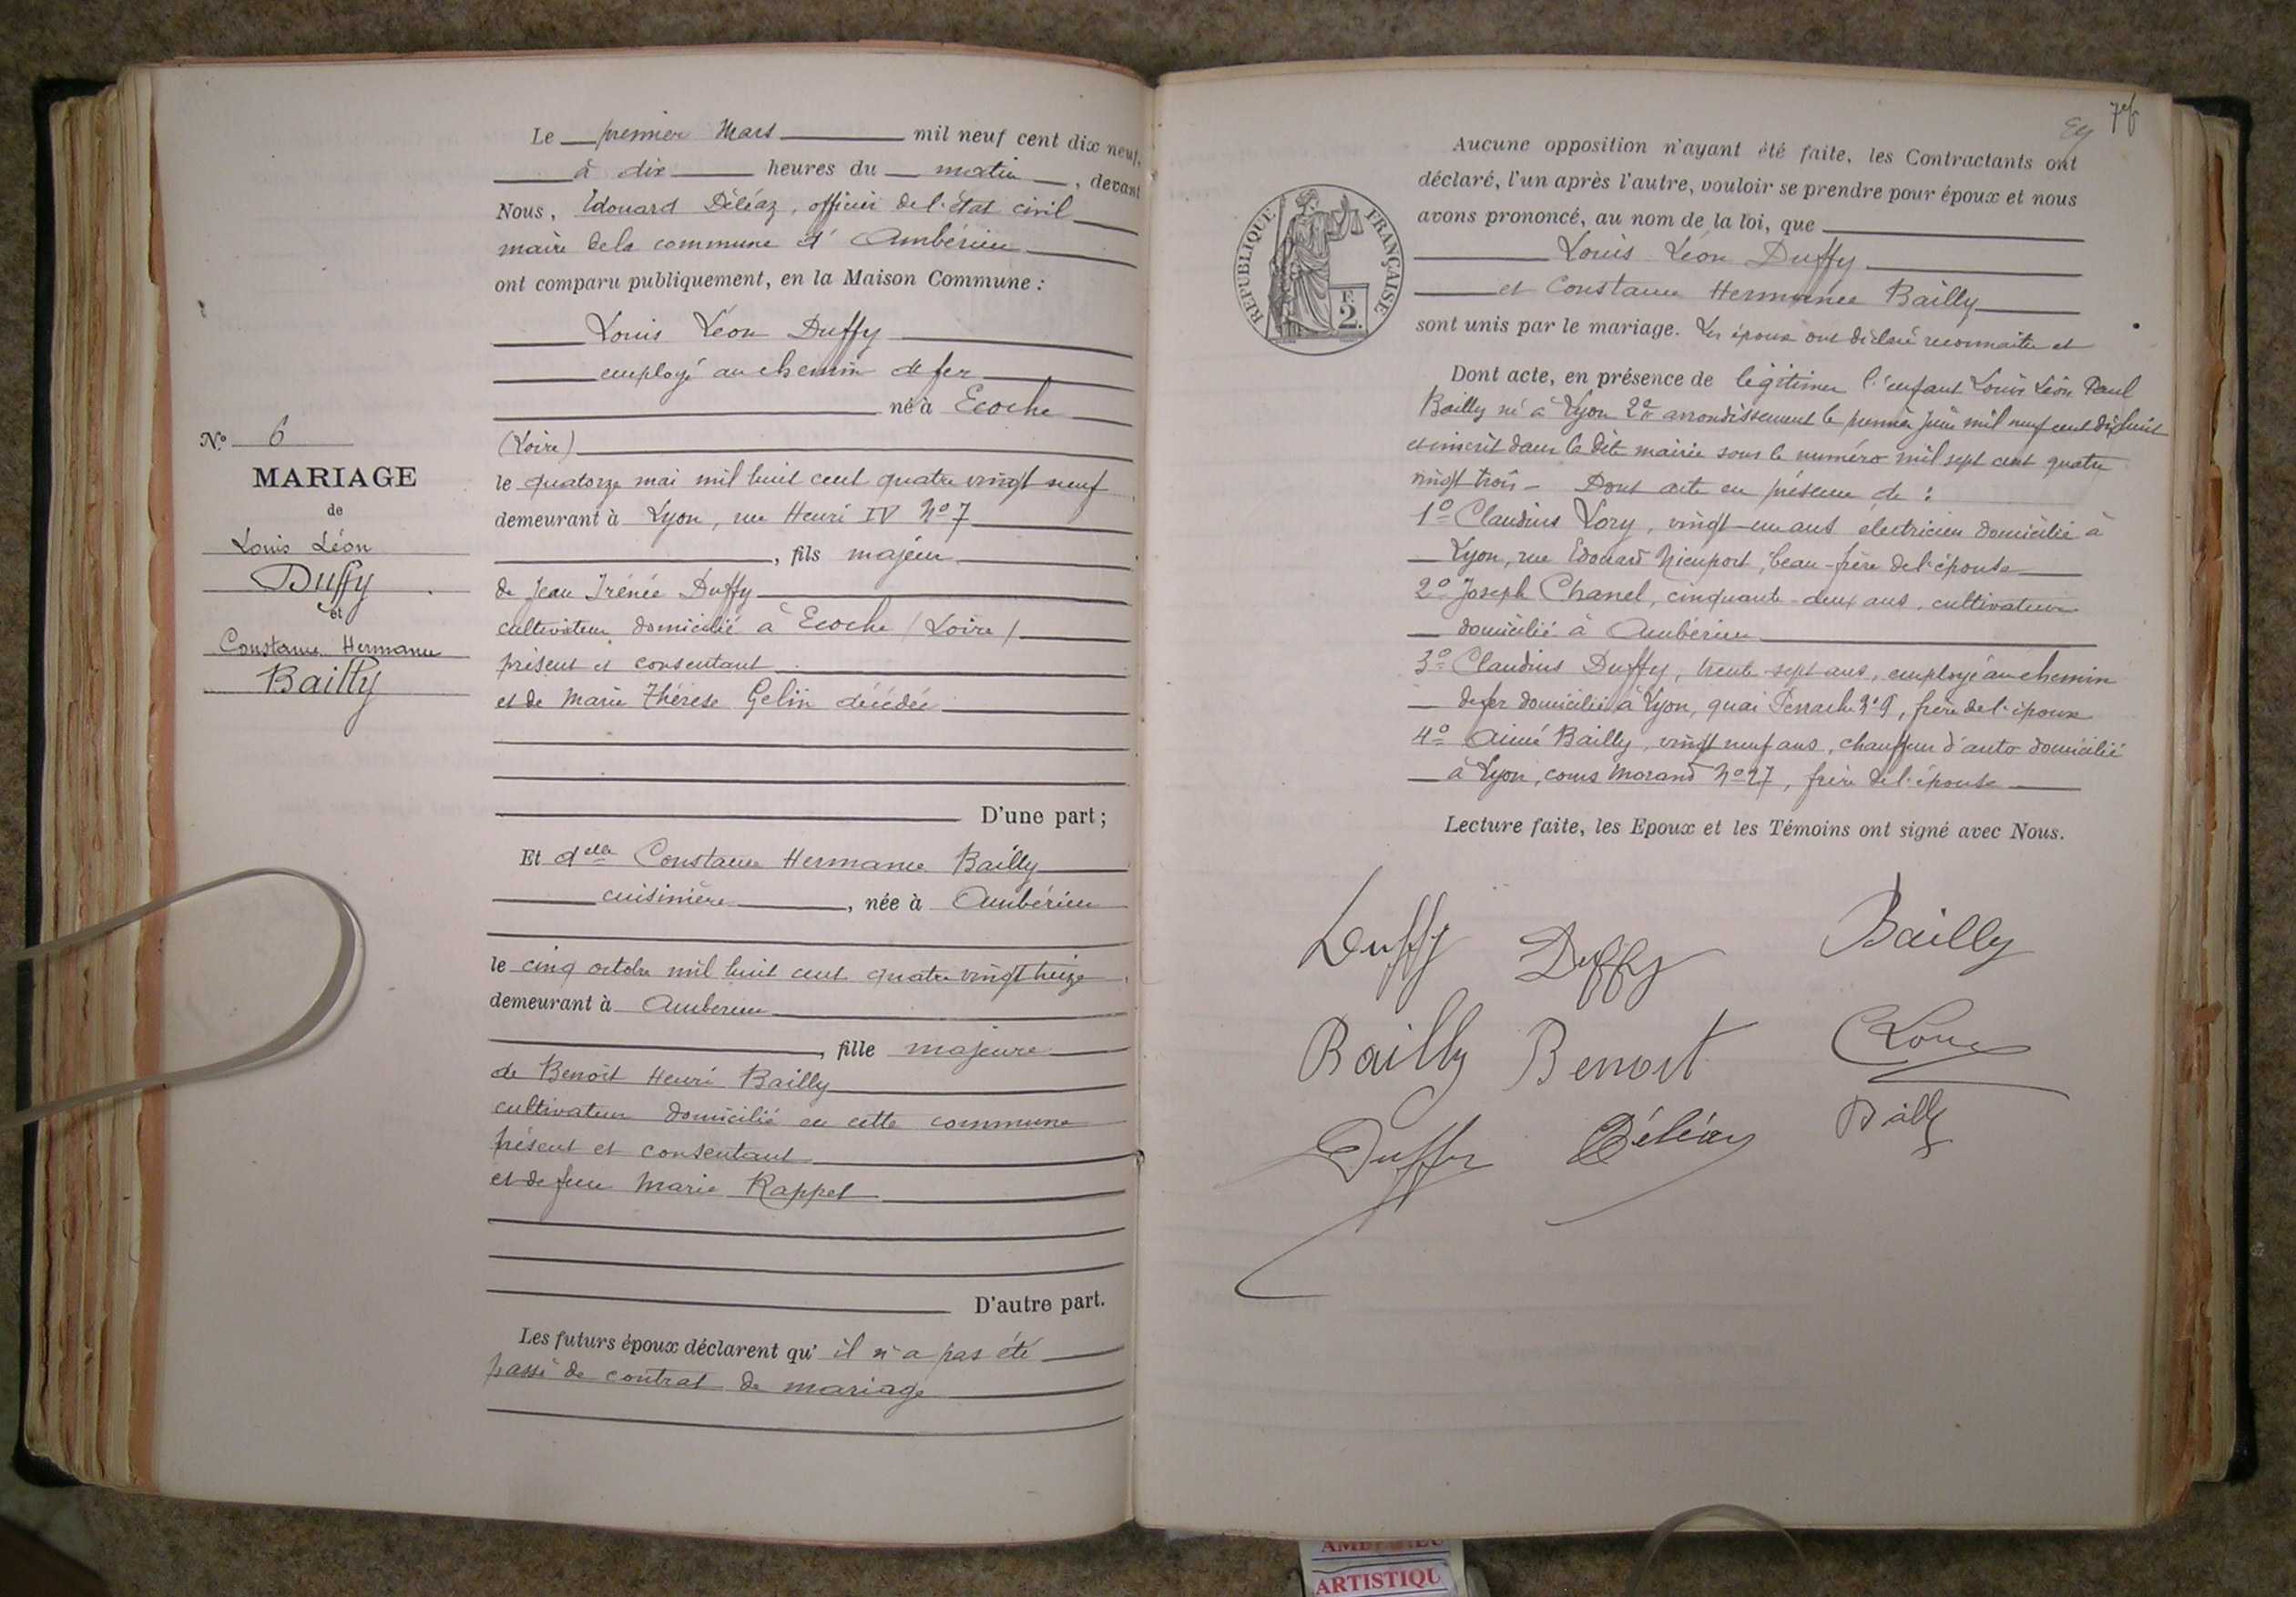 Le premier Mars mil neuf cent dix neuf,
à dix heures du matin, devant
Nous, Edouard Déléaz, officier de l'état civil
maire de la commune d'Ambérieu
ont comparu publiquement, en la Maison Commune :
Louis Léon Duffy
employé au chemin de fer
né à Ecoche
(Loire)
le quatorze mai mil huit cent quatre vingt neuf
demeurant à Lyon, rue Henri IV No 7
, fils majeur
de Jean Irénée Duffy
cultivateur domicilié à Ecoche (Loire)
présent et consentant
et de Marie Thérèse Gelin décédée
D'une part ;
No 6
MARIAGE
de
Louis Léon
Duffy
et
Constance Hermance
Bailly
Et delle Constance Hermance Bailly
cuisinière, née à Ambérieu
le cinq octobre mil huit cent quatre vingt treize
demeurant à Amberieu
, fille majeure
de Benoît Henri Bailly
cultivateur domicilié en cette commune
présent et consentant
et de feue Marie Rappet
D'autre part.
Les futurs époux déclarent qu'il n'a pas été
passé de contrat de mariage
76
Aucune opposition n'ayant été faite, les Contractants ont
déclaré, l'un après l'autre, vouloir se prendre pour époux et nous
avons prononcé, au nom de la loi, que
Louis Léon Duffy
et Constance Hermance Bailly
sont unis par le mariage. Les époux ont déclaré reconnaître et
Dont acte, en présence de légitimer l'enfant Louis Léon Paul
Bailly né à Lyon 2e arrondissement le premier juin mil neuf cent dix huit
et inscrit dans la dite mairie sous le numéro mil sept cent quatre
vingt trois - Dont acte en présence de :
1o Claudius Lory, vingt-un ans électricien domicilié à
Lyon, rue Edouard Nieuport, beau-frère de l'épouse
2o Joseph Chanel, cinquante-deux ans, cultivateur
domicilié à Ambérieu
3o Claudius Duffy, trente-sept ans, employé au chemin
de fer domicilié à Lyon, quai Perrache 39, frère de l'époux
4o Aimé Bailly, vingt neuf ans, chauffeur d'auto domicilié
à Lyon, cours Morand No 27, frère de l'épouse
Lecture faite, les Epoux et les Témoins ont signé avec Nous.
REPUBLIQUE FRANÇAISE
F.
2.
Duffy Duffy Bailly
Bailly Benoit CLory
Duffy Déléaz Bailly
ARTISTIQU